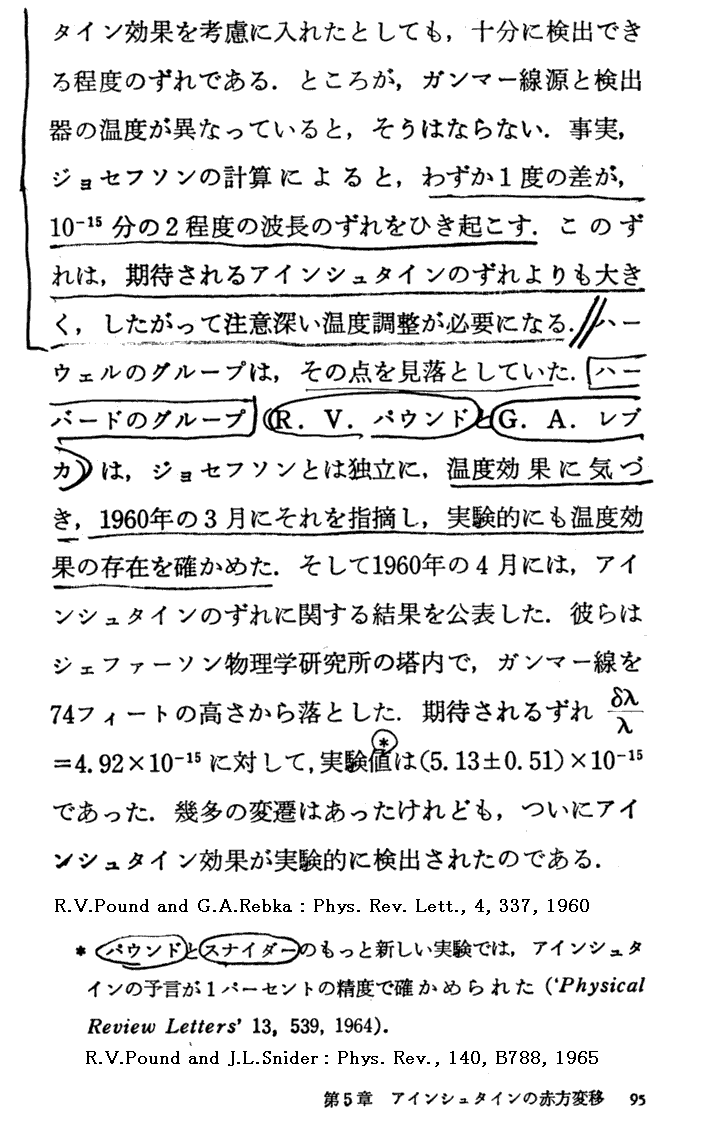 タイン効果を考慮に入れたとしても，十分に検出でき
る程度のずれである．ところが，ガンマー線源と検出
器の温度が異なっていると，そうはならない．事実，
ジョセフソンの計算によると，わずか1度の差が，
10⁻¹⁵ 分の2程度の波長のずれをひき起こす．このず
れは，期待されるアインシュタインのずれよりも大き
く，したがって注意深い温度調整が必要になる．ハー
ウェルのグループは，その点を見落としていた．ハー
バードのグループ（R．V．パウンドとG．A．レブ
カ）は，ジョセフソンとは独立に，温度効果に気づ
き，1960年の3月にそれを指摘し，実験的にも温度効
果の存在を確かめた．そして1960年の4月には，アイ
ンシュタインのずれに関する結果を公表した．彼らは
ジェファーソン物理学研究所の塔内で，ガンマー線を
74フィートの高さから落とした．期待されるずれ δλ/λ
=4.92×10⁻¹⁵ に対して，実験値*は(5.13±0.51)×10⁻¹⁵
であった．幾多の変遷はあったけれども，ついにアイ
ンシュタイン効果が実験的に検出されたのである．
R.V.Pound and G.A.Rebka : Phys. Rev. Lett., 4, 337, 1960
* パウンドとスナイダーのもっと新しい実験では，アインシュタ
インの予言が1パーセントの精度で確かめられた ('Physical
Review Letters' 13, 539, 1964).
R.V.Pound and J.L.Snider : Phys. Rev., 140, B788, 1965
第5章 アインシュタインの赤方変移 95